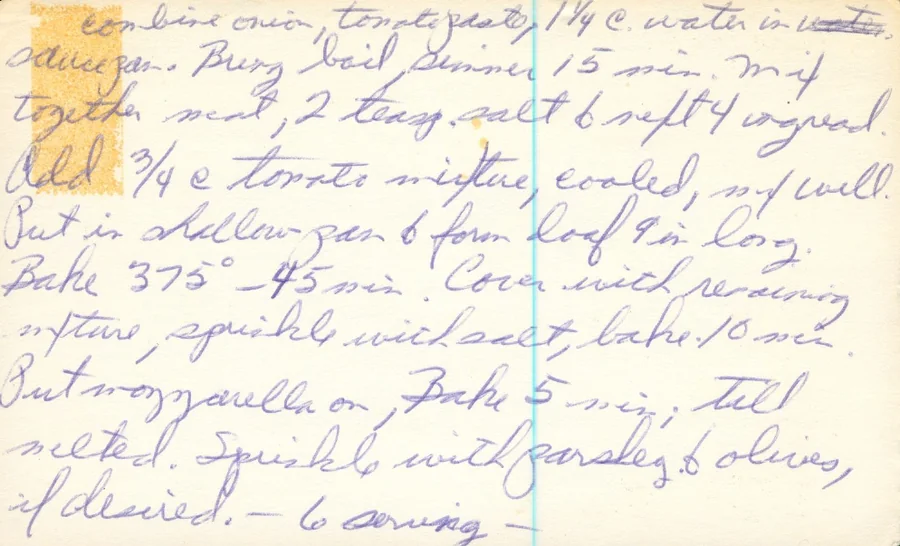 combine onion, tomato paste, 1 1/4 c. water in
saucepan. Bring boil, simmer 15 min. Mix
together meat, 2 teasp. salt & next 4 ingread.
Add 3/4 c tomato mixture, cooled, mix well.
Put in shallow pan & form loaf 9 in long.
Bake 375° - 45 min. Cover with remaining
mixture, sprinkle with salt, bake 10 min.
Put mozzarella on, Bake 5 min, till
melted. Sprinkle with parsley & olives,
if desired. — 6 serving —